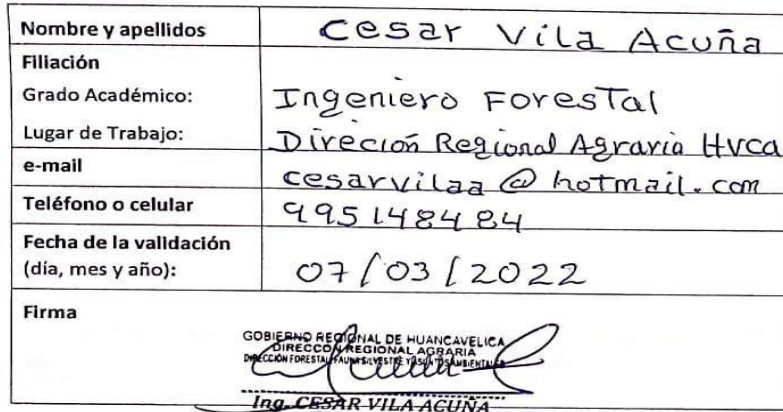 Nombre y apellidos Cesar Vila Acuña
Filiación
Grado Académico: Ingeniero Forestal
Lugar de Trabajo: Direción Regional Agraria Hvca
e-mail cesarvilaa@hotmail.com
Teléfono o celular 995148484
Fecha de la validación
(día, mes y año): 07/03/2022
Firma
GOBIERNO REGIONAL DE HUANCAVELICA
DIRECCÓN REGIONAL AGRARIA
DIRECCIÓN FORESTAL, FAUNA SILVESTRE Y ASUNTOS AMBIENTALES
Ing. CESAR VILA ACUÑA